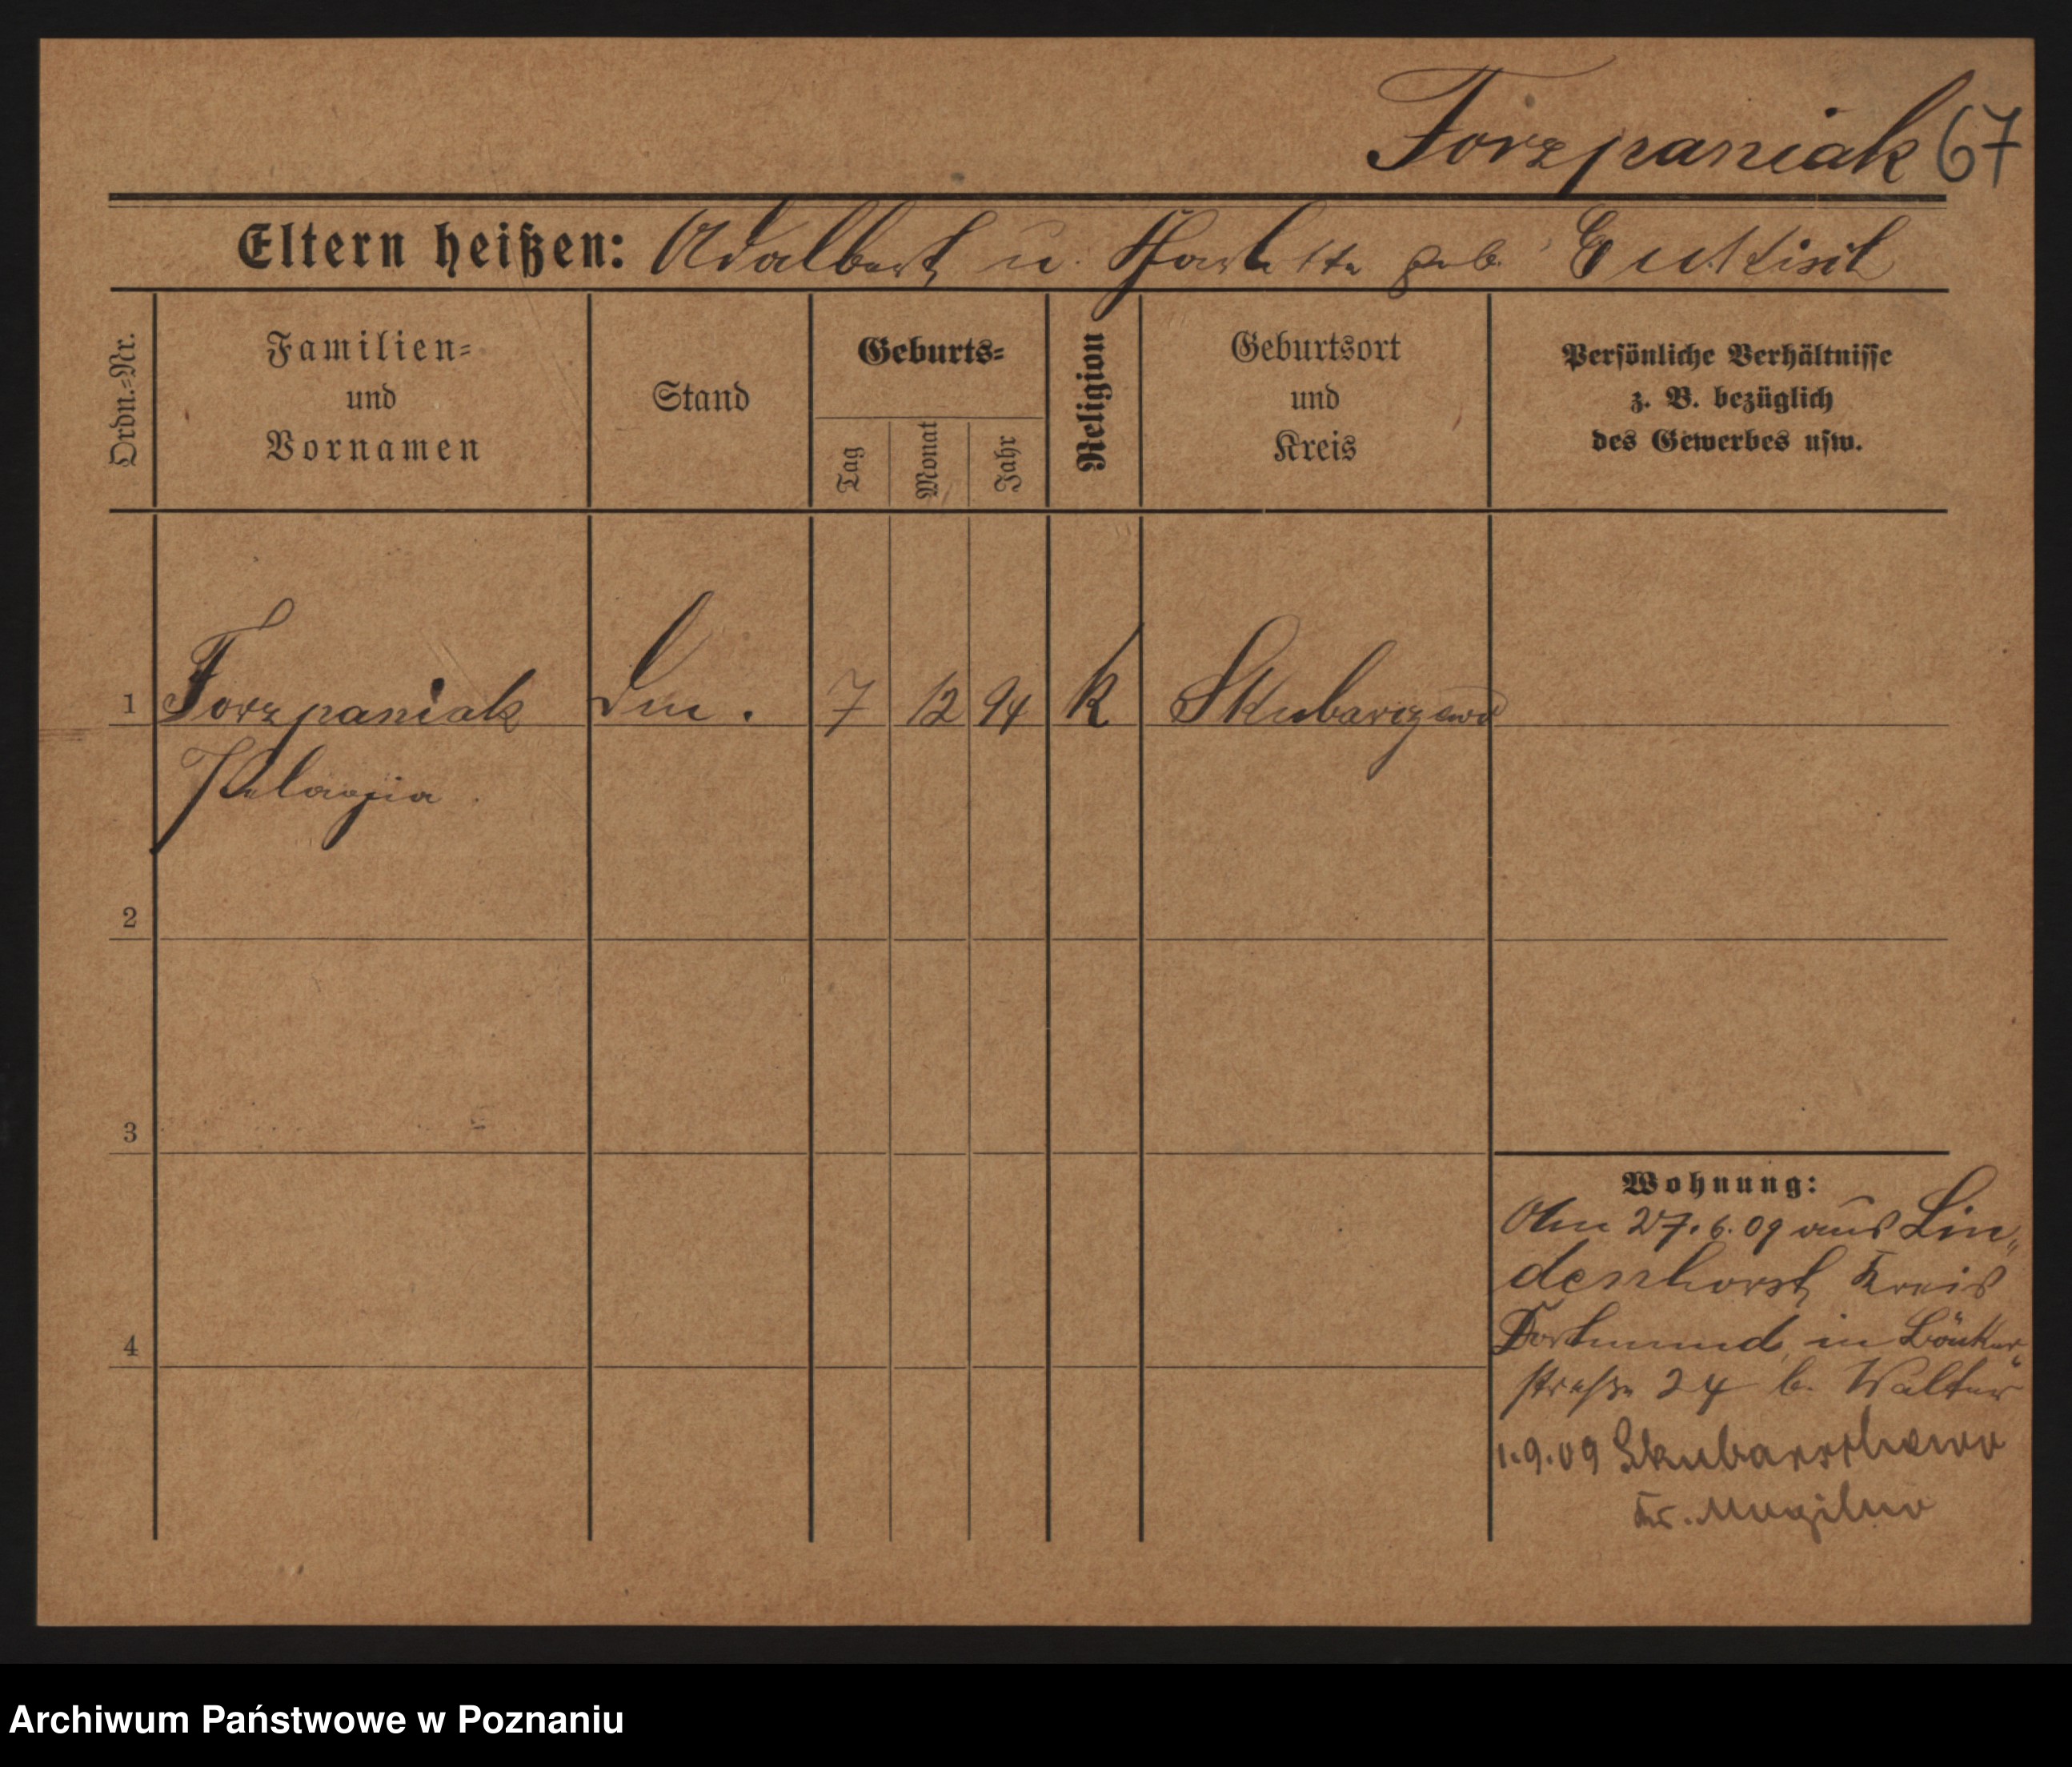 Forzpaniak 67
Eltern heißen: Adalbert u. geb.
Ordn.-Nr.
Familien-
und
Vornamen
Stand
Geburts-
Tag
Monat
Jahr
Religion
Geburtsort
und
Kreis
Persönliche Verhältnisse
z. B. bezüglich
des Gewerbes usw.
1 Forzpaniak 7 12 94 k
Pelagia
2
3
4
Wohnung:
27. 6. 09 aus Lin„
denhorst, Kreis
Dortmund, in
straße 24 b. Walter
1.9.09
Kr. Mogilno
Archiwum Państwowe w Poznaniu